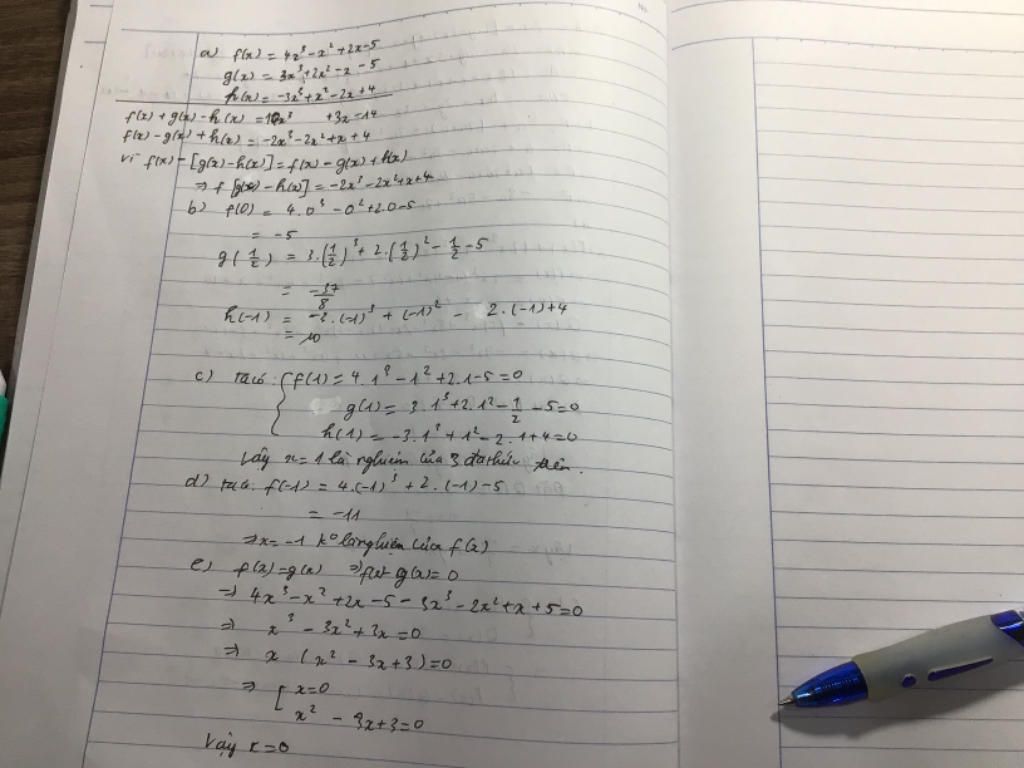 a) f(x) = 4x³ - x² + 2x - 5
g(x) = 3x³ + 2x² - x - 5
h(x) = -3x³ + x² - 2x + 4
f(x) + g(x) - h(x) = 10x³ + 3x - 14
f(x) - g(x) + h(x) = -2x³ - 2x² + x + 4
vì f(x) - [g(x) - h(x)] = f(x) - g(x) + h(x)
⇒ f [g(x) - h(x)] = -2x³ - 2x² + x + 4
b) f(0) = 4.0³ - 0² + 2.0 - 5
= -5
g(1/2) = 3.(1/2)³ + 2.(1/2)² - 1/2 - 5
= -37/8
h(-1) = -3.(-1)³ + (-1)² - 2.(-1) + 4
= 10
c) Ta có: { f(1) = 4.1³ - 1² + 2.1 - 5 = 0
g(1) = 3.1³ + 2.1² - 1/2 - 5 = 0
h(1) = -3.1³ + 1² - 2.1 + 4 = 0
Vậy x = 1 là nghiệm của 3 đa thức trên.
d) Ta có: f(-1) = 4.(-1)³ + 2.(-1) - 5
= -11
⇒ x = -1 k° là nghiệm của f(x)
e) f(x) = g(x) ⇒ f(x) - g(x) = 0
⇒ 4x³ - x² + 2x - 5 - 3x³ - 2x² + x + 5 = 0
⇒ x³ - 3x² + 3x = 0
⇒ x (x² - 3x + 3) = 0
⇒ [ x = 0
x² - 3x + 3 = 0
Vậy x = 0